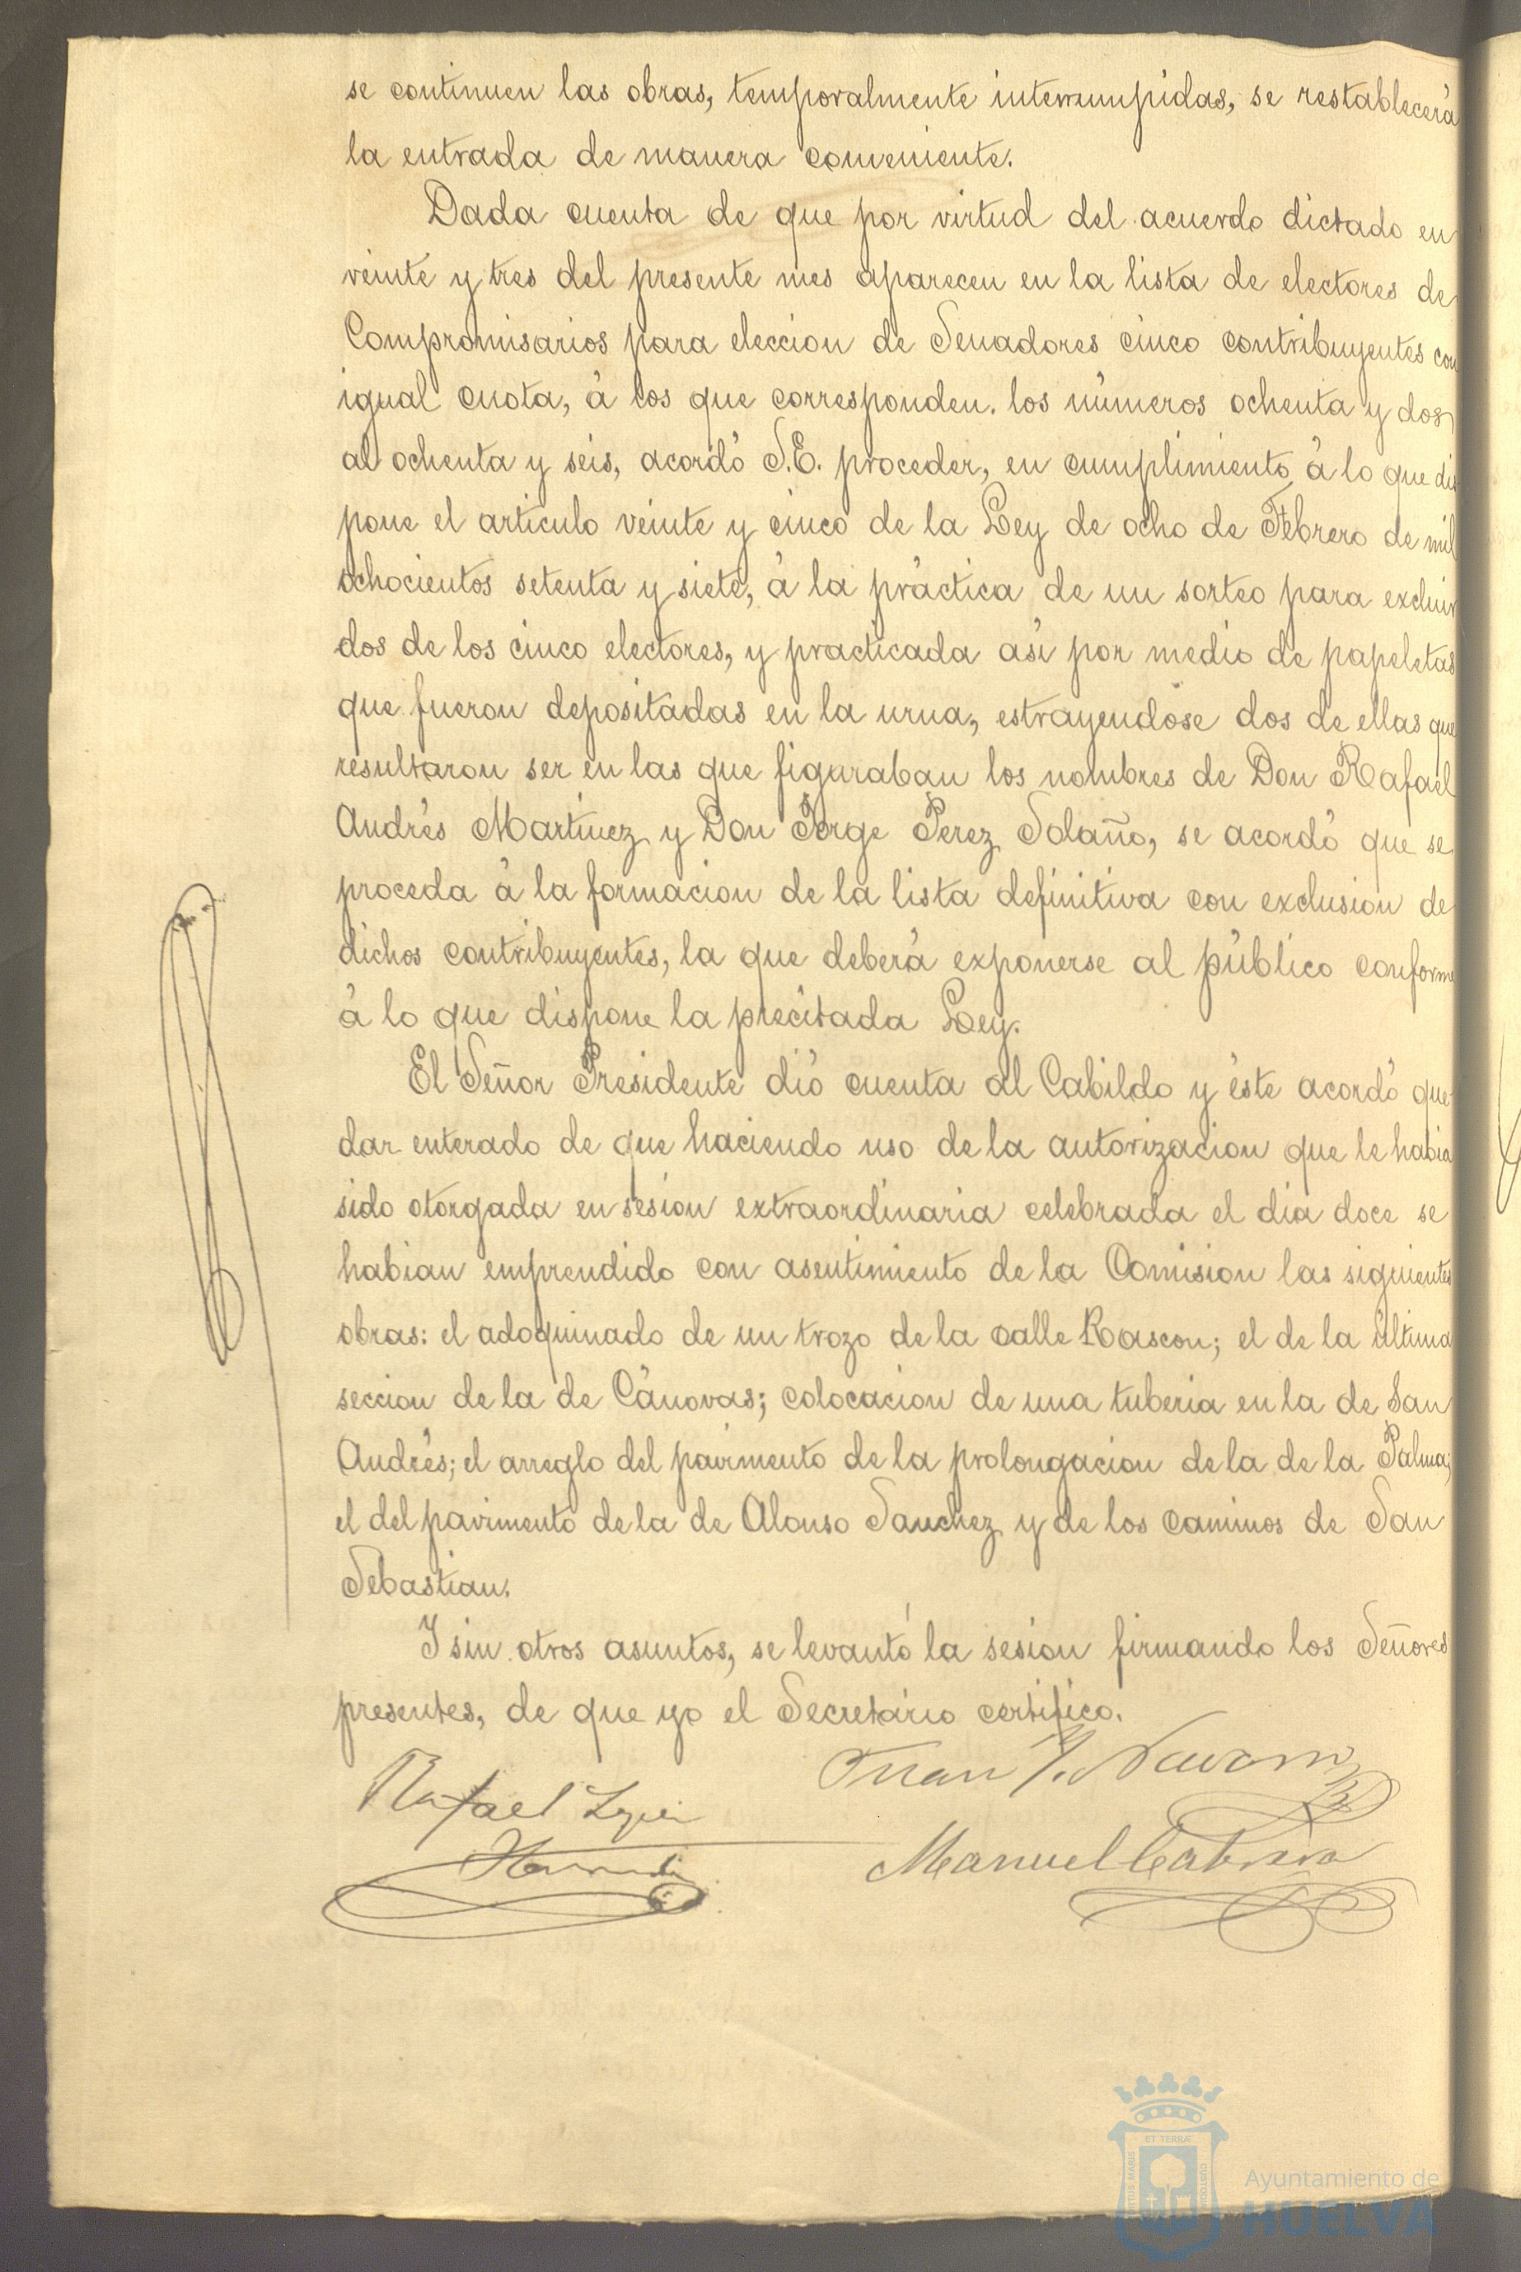 se continuen las obras, temporalmente interrumpidas, se restablecerá
la entrada de manera conveniente.
Dada cuenta de que por virtud del acuerdo dictado en
veinte y tres del presente mes aparecen en la lista de electores de
Compromisarios para eleccion de Senadores cinco contribuyentes con
igual cuota, á los que corresponden. los números ochenta y dos
al ochenta y seis, acordó S.E. proceder, en cumplimiento á lo que dis
pone el articulo veinte y cinco de la Ley de ocho de Febrero de mil
ochocientos setenta y siete, á la práctica de un sorteo para excluir
dos de los cinco electores, y practicada asi por medio de papeletas
que fueron depositadas en la urna, estrayendose dos de ellas que
resultaron ser en las que figuraban los nombres de Don Rafael
Andrés Martinez y Don Jorge Perez Solaño, se acordó que se
proceda á la formacion de la lista definitiva con exclusion de
dichos contribuyentes, la que deberá exponerse al público conforme
á lo que dispone la precitada Ley.
El Señor Presidente dió cuenta al Cabildo y éste acordó que
dar enterado de que haciendo uso de la autorizacion que le habia
sido otorgada en sesion extraordinaria celebrada el dia doce se
habian emprendido con asentimiento de la Comision las siguientes
obras: el adoquinado de un trozo de la calle Rascon; el de la última
seccion de la de Cánovas; colocacion de una tuberia en la de San
Andrés; el arreglo del pavimento de la prolongacion de la de la Palma;
el del pavimento de la de Alonso Sanchez y de los caminos de San
Sebastian.
Y sin otros asuntos, se levantó la sesion firmando los Señores
presentes, de que yo el Secretario certifico.
Juan J. Navarro
Rafael Lopez
Hernandez
Manuel Cabrera
ET TERRÆ
PORTUS MARIS
CUSTODIA
Ayuntamiento de
HUELVA